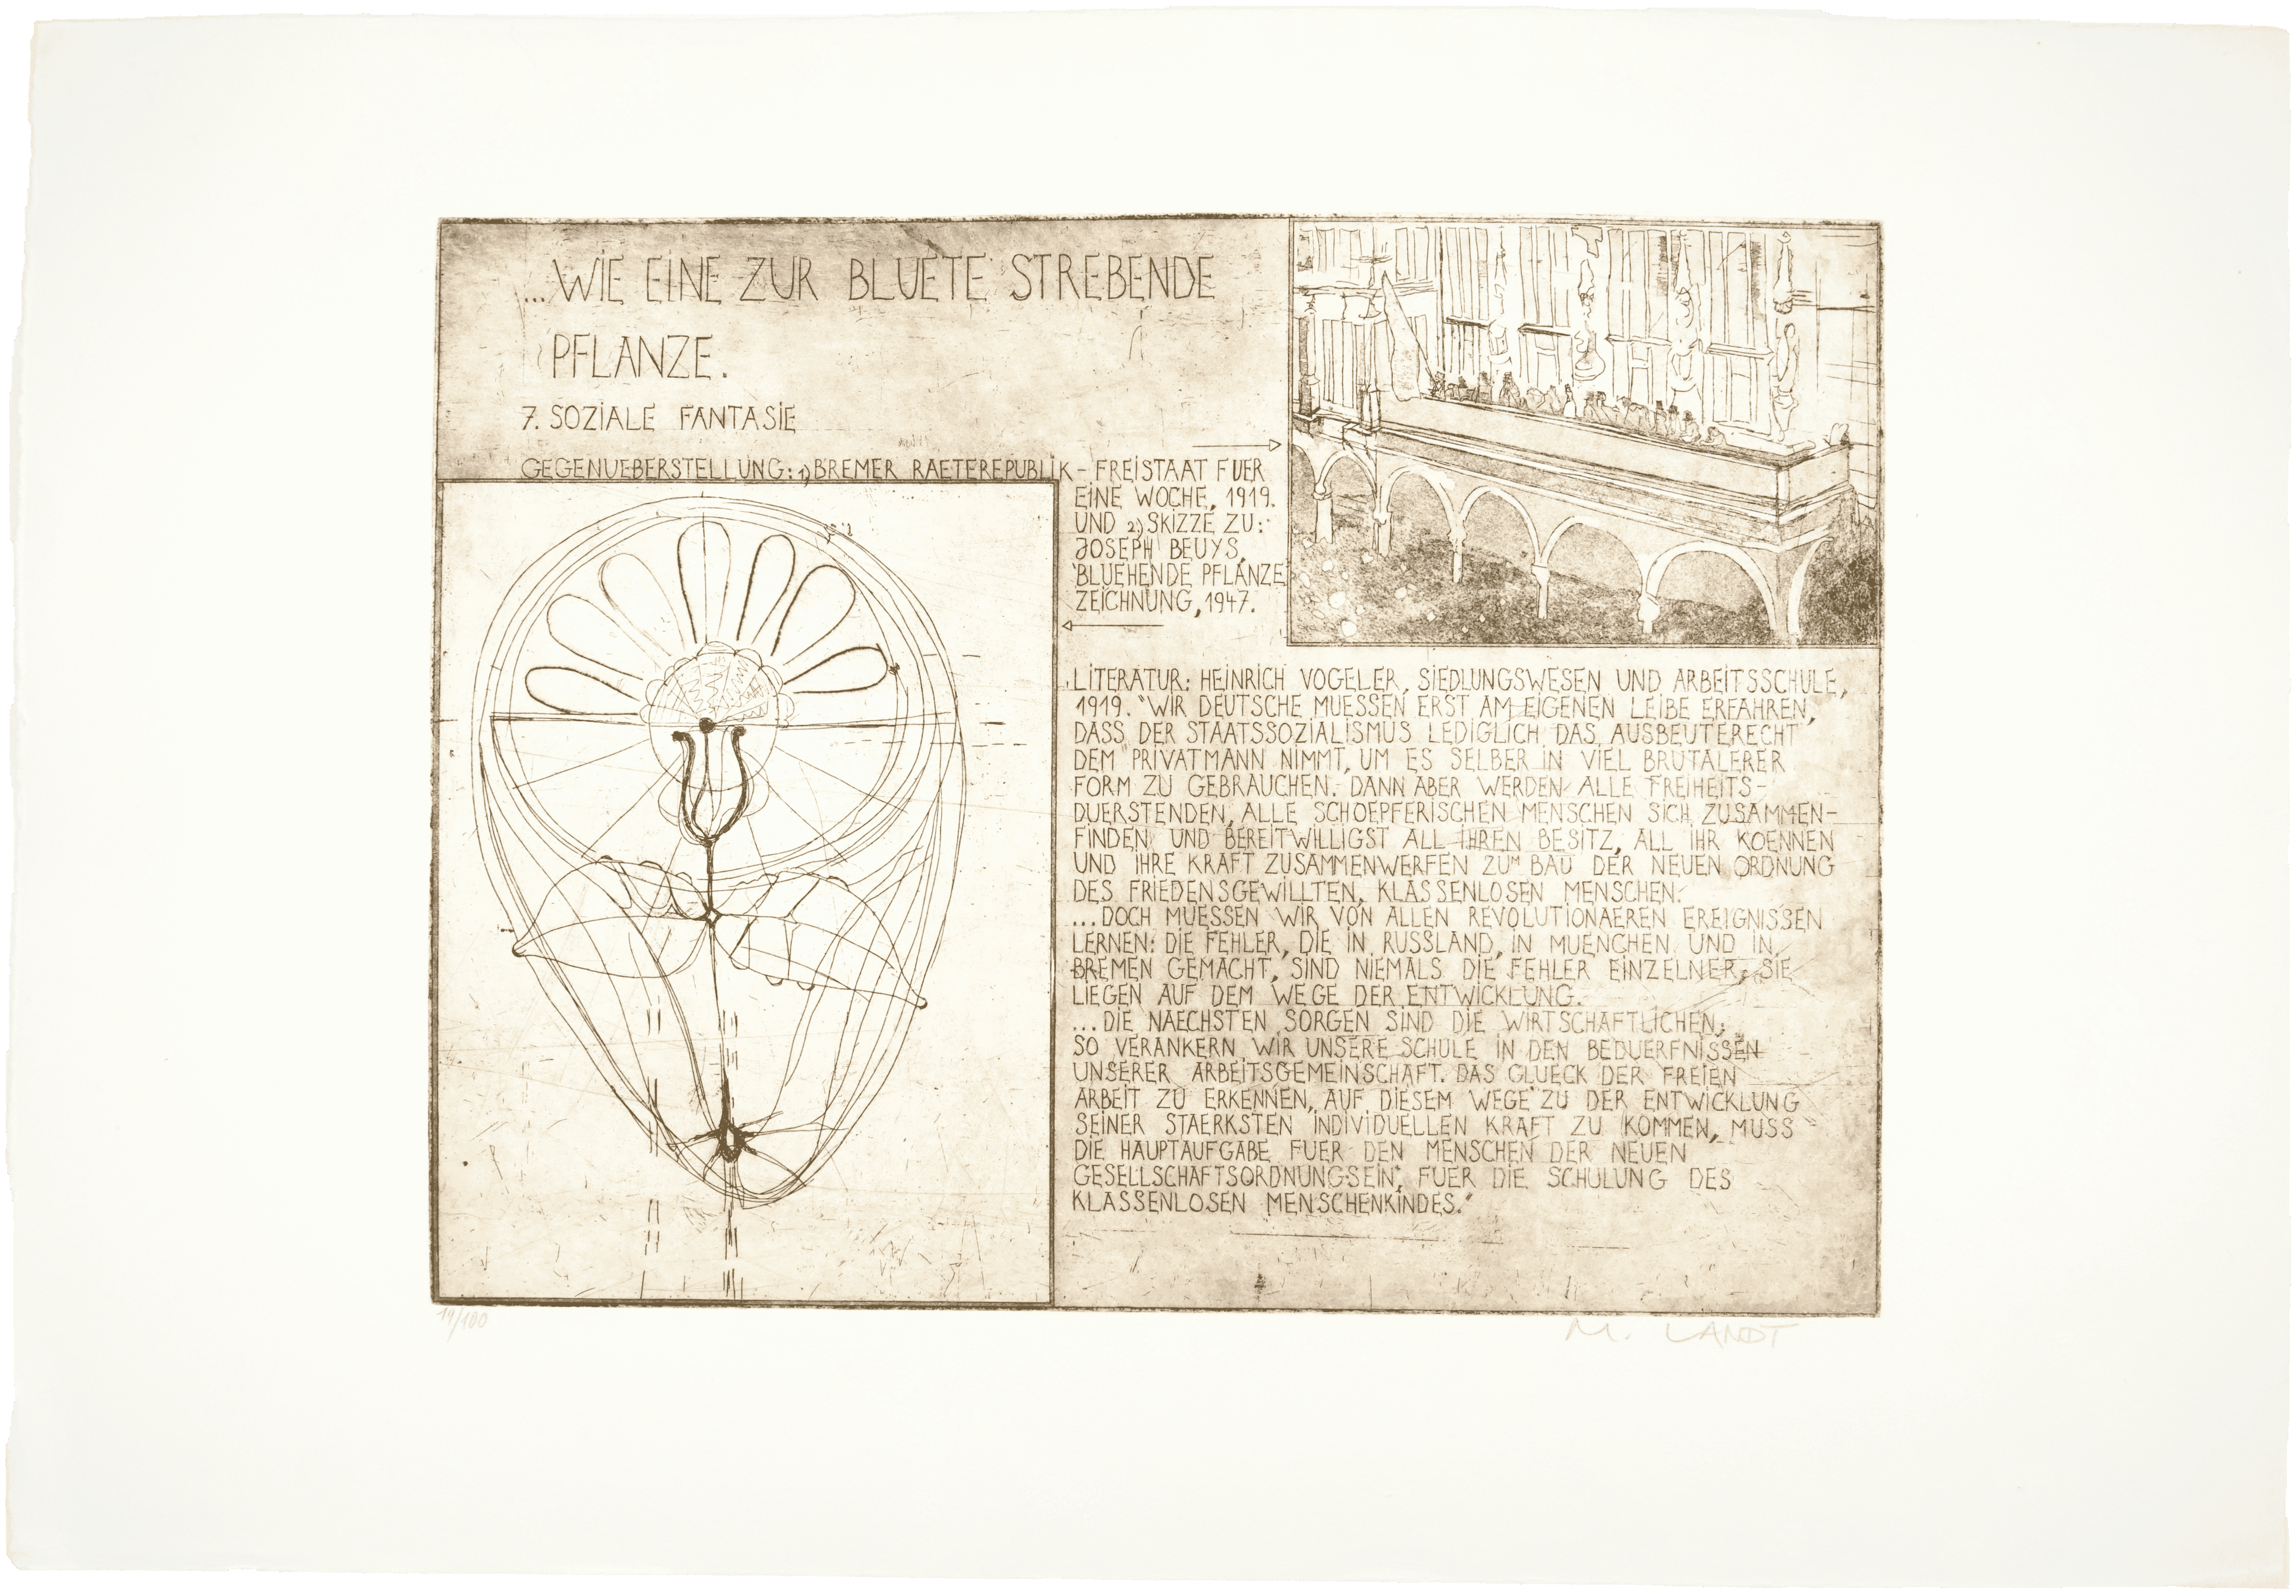 ...WIE EINE ZUR BLUETE STREBENDE
PFLANZE.
7. SOZIALE FANTASIE
GEGENUEBERSTELLUNG: 1) BREMER RAETEREPUBLIK - FREISTAAT FUER
EINE WOCHE, 1919.
UND 2) SKIZZE ZU:
JOSEPH BEUYS,
'BLUEHENDE PFLANZE'
ZEICHNUNG, 1947.
LITERATUR: HEINRICH VOGELER, SIEDLUNGSWESEN UND ARBEITSSCHULE,
1919. "WIR DEUTSCHE MUESSEN ERST AM EIGENEN LEIBE ERFAHREN,
DASS DER STAATSSOZIALISMUS LEDIGLICH DAS AUSBEUTERECHT
DEM PRIVATMANN NIMMT, UM ES SELBER IN VIEL BRUTALERER
FORM ZU GEBRAUCHEN. DANN ABER WERDEN ALLE FREIHEITS-
DUERSTENDEN, ALLE SCHOEPFERISCHEN MENSCHEN SICH ZUSAMMEN-
FINDEN UND BEREITWILLIGST ALL IHREN BESITZ, ALL IHR KOENNEN
UND IHRE KRAFT ZUSAMMENWERFEN ZUM BAU DER NEUEN ORDNUNG
DES FRIEDENSGEWILLTEN, KLASSENLOSEN MENSCHEN.
...DOCH MUESSEN WIR VON ALLEN REVOLUTIONAEREN EREIGNISSEN
LERNEN: DIE FEHLER, DIE IN RUSSLAND, IN MUENCHEN UND IN
BREMEN GEMACHT, SIND NIEMALS DIE FEHLER EINZELNER, SIE
LIEGEN AUF DEM WEGE DER ENTWICKLUNG.
...DIE NAECHSTEN SORGEN SIND DIE WIRTSCHAFTLICHEN,
SO VERANKERN WIR UNSERE SCHULE IN DEN BEDUERFNISSEN
UNSERER ARBEITSGEMEINSCHAFT. DAS GLUECK DER FREIEN
ARBEIT ZU ERKENNEN, AUF DIESEM WEGE ZU DER ENTWICKLUNG
SEINER STAERKSTEN INDIVIDUELLEN KRAFT ZU KOMMEN, MUSS
DIE HAUPTAUFGABE FUER DEN MENSCHEN DER NEUEN
GESELLSCHAFTSORDNUNG SEIN, FUER DIE SCHULUNG DES
KLASSENLOSEN MENSCHENKINDES."
14/100
M. LANDT